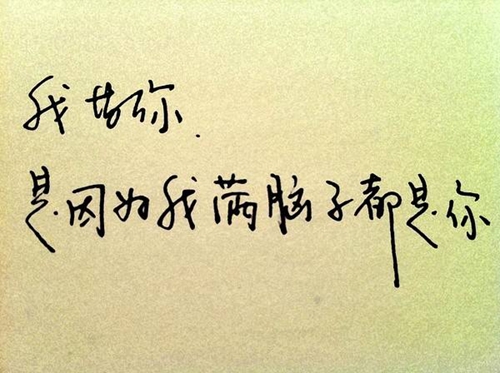 我敢你.
是因为我满脑子都是你